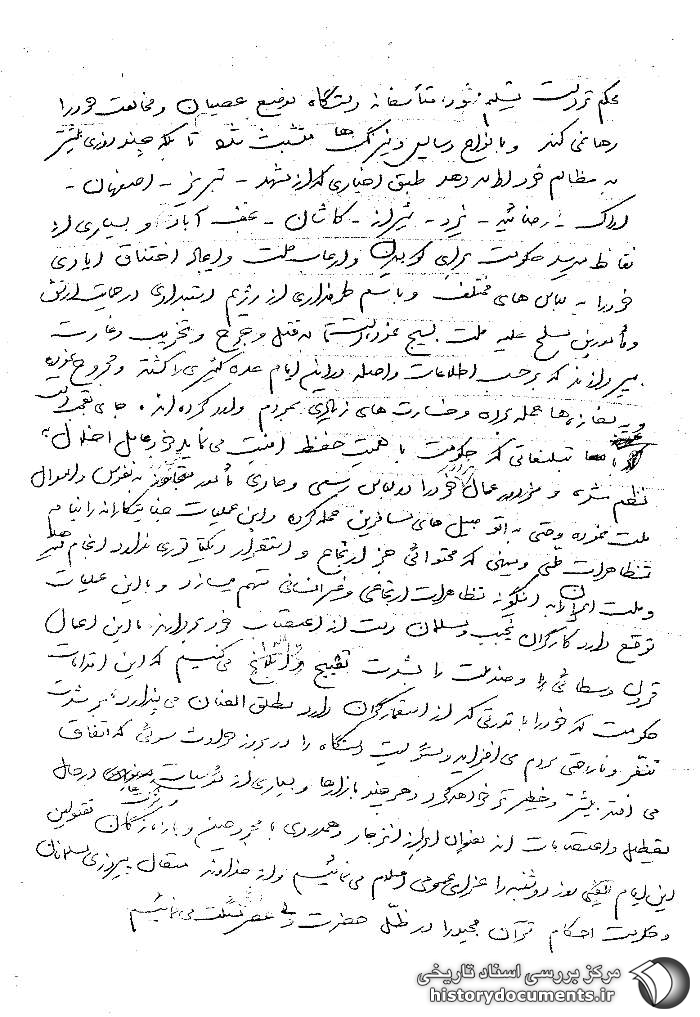 محکم تر دست متأسفانه دستگاه بوضع عصیان و مخالفت خود را
رها نمی کند و با انواع وسایل و نیرنگ ها متشبث شده تا بلکه چند روزی بیشتر
به مظالم خود ادامه دهد طبق اخباری که از مشهد - تبریز - اصفهان -
اراک - رضائیه - یزد - شیراز - کاشان - نجف آباد و بسیاری از
نقاط میرسد حکومت برای کوبیدن و ارعاب ملت و ایجاد اختناق ایادی
خود را به لباس های مختلف و باسم طرفداری از رژیم استبدادی در حمایت ارتش
و مأمورین مسلح علیه ملت بسیج نموده است به قتل و جرح و تخریب و غارت
میپردازند که برحسب اطلاعات واصله در این ایام عده کثیری را کشته و مجروح نموده
و به مغازه ها حمله برده و خسارت های زیادی بمردم وارد کرده اند جای تعجب است
با تبلیغاتی که حکومت بابت حفظ امنیت می نماید خود عامل اخلال
نظم شده و مزدوران عمال خود را در لباس رسمی و عادی مأمور تجاوز به نفوس و اموال
ملت نموده و حتی به اتومبیل های مسافرین حمله کرده و این عملیات جنایتکارانه را بنام
تظاهرات ملی و میهنی که محتوائی جز ارتجاع و استقرار دیکتاتوری ندارد انجام
و ملت ایران را به اینگونه تظاهرات ارتجاعی و غیر انسانی متهم میسازد و با این عملیات
توقع دارد کارگران نجیب و مسلمان دست از اعتصاب خود بردارند ما این اعمال
قرون وسطائی و ضد ملت را بشدت تقبیح می کنیم که این اقدامات
حکومت که خود را با قدرتی که از استعمارگران دارد مطلق العنان می پندارد بر شدت
تنفر و ناراحتی مردم می افزاید و مسئولیت دستگاه را در بروز حوادث سوئی که اتفاق
می افتد بیشتر و خطیرتر خواهد کرد و هر چند بازارها و بسیاری از مؤسسات در حال
تعطیل و اعتصابات اند بعنوان ابراز انزجار و همدردی با مجروحین و بازماندگان مقتولین
این ایام روز دوشنبه را عزای عمومی اعلام می نمائیم و از خداوند متعال پیروزی مسلمانان
و حکومت احکام قرآن مجید را در ظل حضرت ولی عصر مسئلت می نمائیم
مرکز بررسی اسناد تاریخی
historydocuments.ir